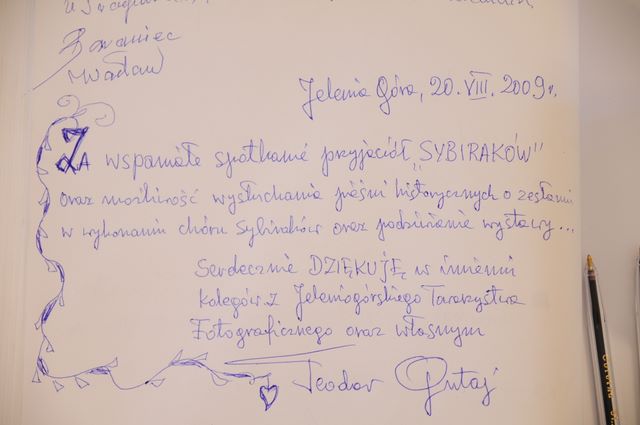 Wacław
Jelenia Góra, 20.VIII.2009r.
ZA wspaniałe spotkanie przyjaciół „SYBIRAKÓW"
oraz możliwość wysłuchania pieśni historycznych o zesłaniu
w wykonaniu chóru Sybiraków oraz podziwianie wystawy...
Serdecznie DZIĘKUJĘ w imieniu
kolegów z Jeleniogórskiego Towarzystwa
Fotograficznego oraz własnym
Teodor Gutaj